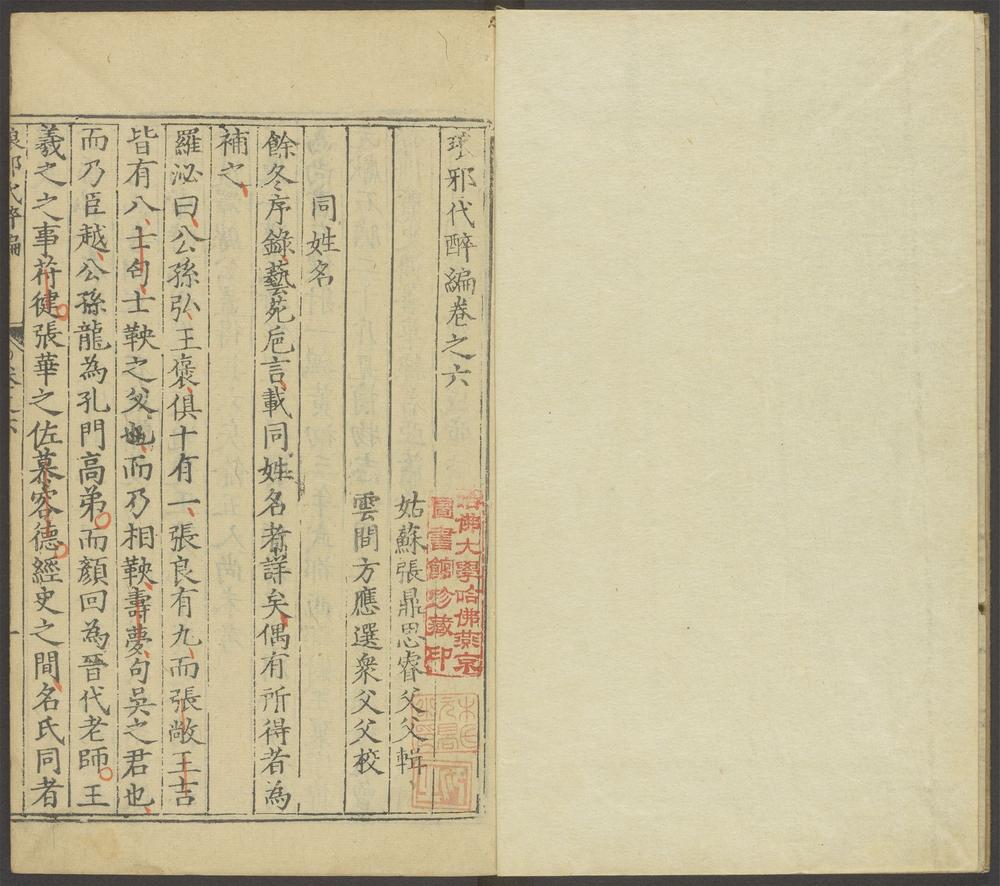 琅邪代醉編卷之六
姑蘇張鼎思睿父父輯
雲間方應選衆父父校
同姓名
餘冬序錄藝苑巵言載同姓名者詳矣偶有所得者為
補之
羅泌曰公孫弘王褒俱十有一張良有九而張敞王吉
皆有八士匄士鞅之父也而乃相鞅壽夢句吳之君也
而乃臣越公孫龍為孔門高弟而顏回為晉代老師王
羲之之事苻健張華之佐慕容德經史之間名氏同者
琅邪代醉編
卷之六
一
洛佛大學哈佛燕京
圖書館珍藏印